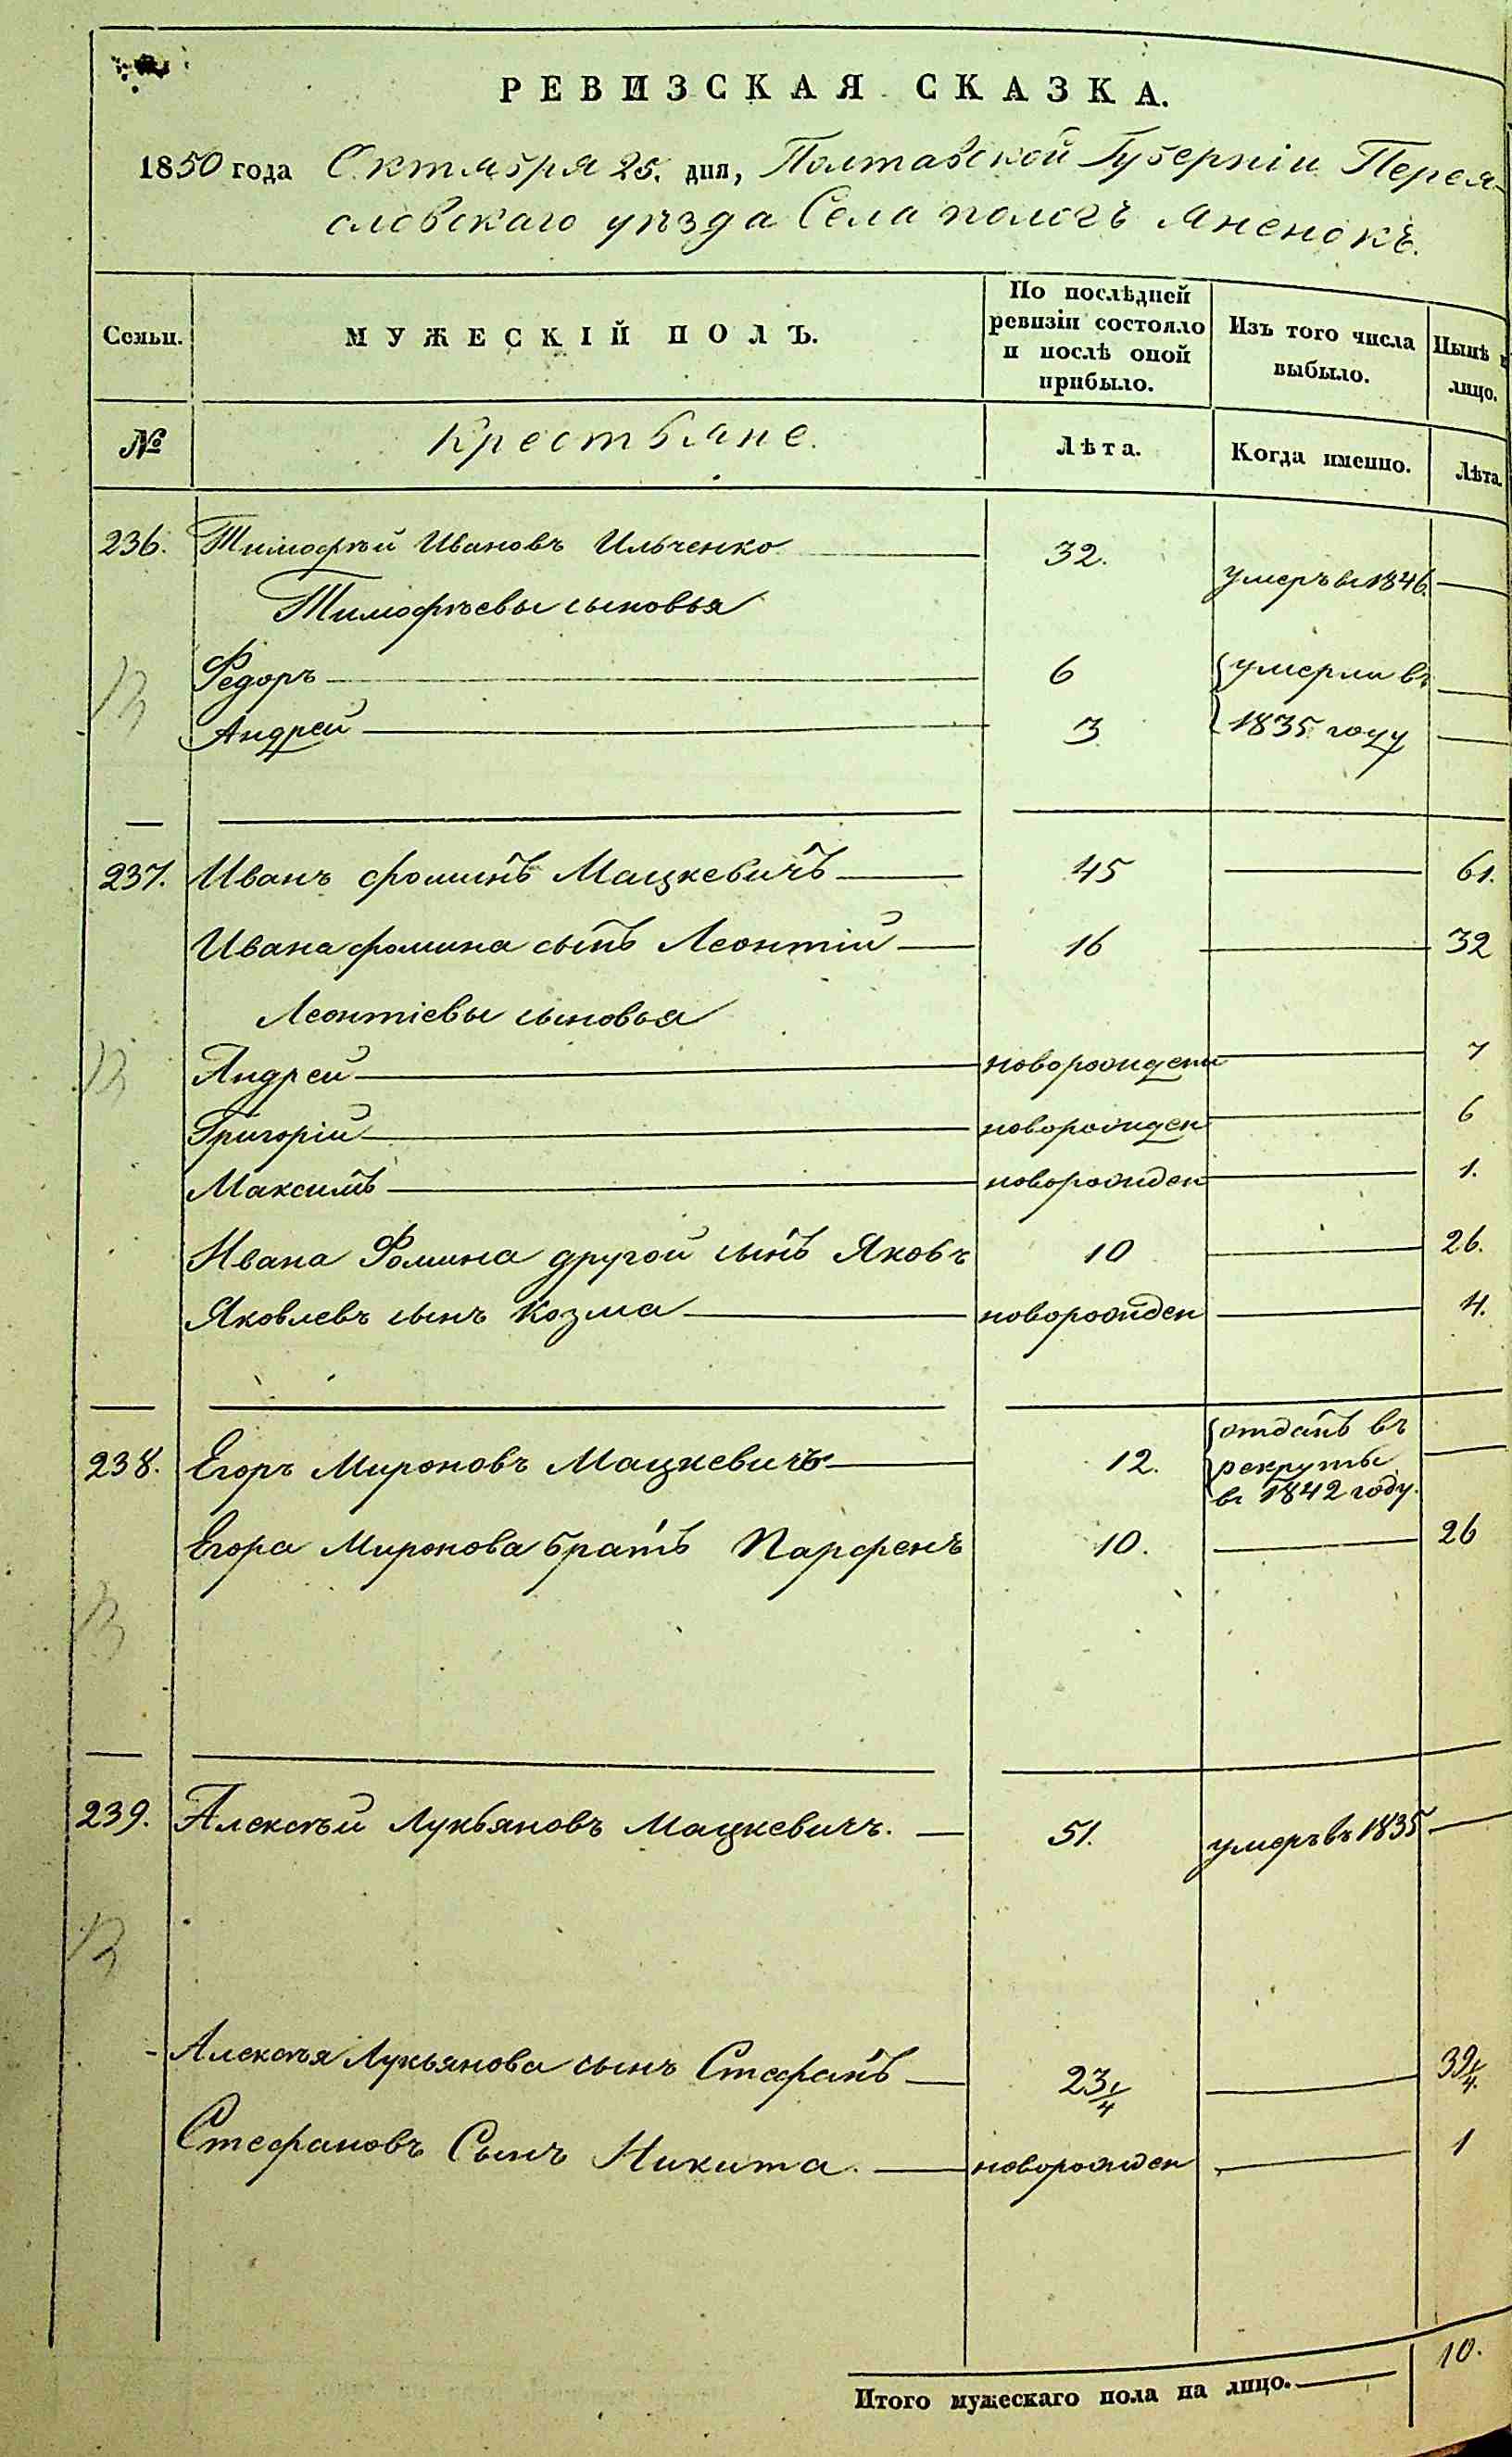 РЕВИЗСКАЯ СКАЗКА.
1850 года Октября 25. дня, Полтавской Губерніи Перея-
словскаго уѣзда Села пологъ Яненокъ.
Семьи. МУЖЕСКІЙ ПОЛЪ. По послѣдней ревизіи состояло и послѣ оной прибыло. Изъ того числа выбыло. Нынѣ н лицо.
№ Крестьяне. Лѣта. Когда именно. Лѣта.
236. Тимофѣй Ивановъ Ильченко 32. умеръ въ 1846.
Тимофѣевы сыновья
Федоръ 6 умерли въ
Андрей 3 1835 году
237. Иванъ фоминъ Мацкевичъ 45 61.
Ивана фомина сынъ Леонтій 16 32
Леонтіевы сыновья
Андрей новорожденъ 7
Григорій новорожден 6
Максимъ новорожден 1.
Ивана Фомина другой сынъ Яковъ 10 26.
Яковлевъ сынъ Козма новорожден 4.
238. Егоръ Мироновъ Мацкевичъ 12. отданъ въ
рекруты
въ 1842 году.
Егора Миронова братъ Парфенъ 10. 26
239. Алексѣй Лукьяновъ Мацкевичъ. 51. умеръ въ 1835
Алексѣя Лукьянова сынъ Стефанъ 23 1/4 39 1/4.
Стефановъ Сынъ Никита. новорожден 1
Итого мужескаго пола на лицо. 10.